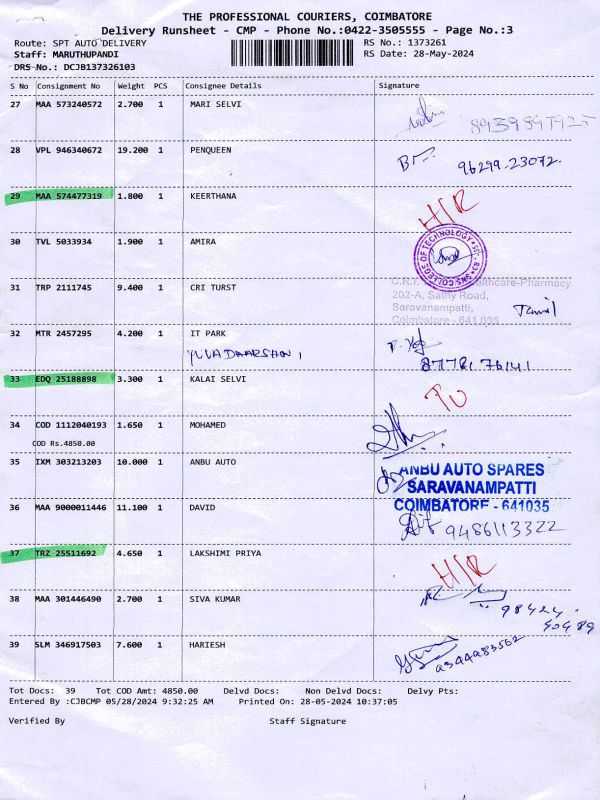 THE PROFESSIONAL COURIERS, COIMBATORE
Delivery Runsheet - CMP - Phone No.:0422-3505555 - Page No.:3
Route: SPT AUTO DELIVERY RS No.: 1373261
Staff: MARUTHUPANDI RS Date: 28-May-2024
DRS No.: DCJB137326103
S No Consignment No Weight PCS Consignee Details Signature
27 MAA 573240572 2.700 1 MARI SELVI
28 VPL 946340672 19.200 1 PENQUEEN
96299-23072.
29 MAA 574477319 1.800 1 KEERTHANA
30 TVL 5033934 1.900 1 AMIRA
SNS COLLEGE OF TECHNOLOGY
31 TRP 2111745 9.400 1 CRI TURST
C.R.T. Healthcare-Pharmacy
202-A, Sathy Road,
Saravanampatti,
Coimbatore - 641 035
Tamil
32 MTR 2457295 4.200 1 IT PARK
YUVADHARSHONI
33 EDQ 25188898 3.300 1 KALAI SELVI
34 COD 1112040193 1.650 1 MOHAMED
COD Rs.4850.00
35 IXM 303213203 10.000 1 ANBU AUTO
ANBU AUTO SPARES
SARAVANAMPATTI
COIMBATORE - 641035
36 MAA 9000011446 11.100 1 DAVID
9486113322
37 TRZ 25511692 4.650 1 LAKSHIMI PRIYA
38 MAA 301446490 2.700 1 SIVA KUMAR
98424
50489
39 SLM 346917503 7.600 1 HARIESH
Tot Docs: 39 Tot COD Amt: 4850.00 Delvd Docs: Non Delvd Docs: Delvy Pts:
Entered By :CJBCMP 05/28/2024 9:32:25 AM Printed On: 28-05-2024 10:37:05
Verified By Staff Signature